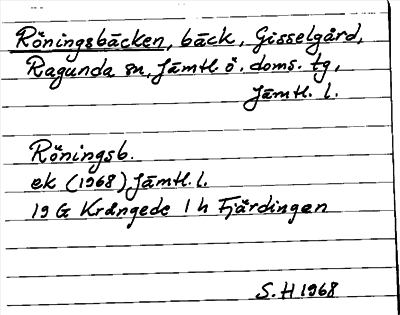 Röningsbäcken, bäck, Gisselgård,
Ragunda sn, Jämtl. ö. doms. tg,
Jämtl. l.
Röningsb.
ek (1968) Jämtl. l.
19 G Krångede 1 h Fjärdingen
S. H 1968